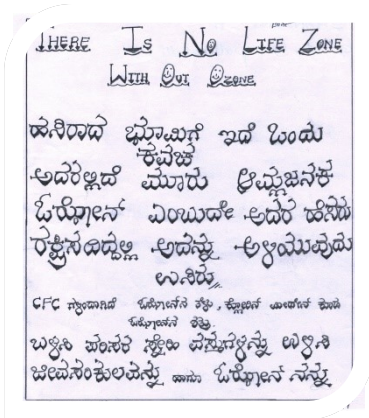 THERE IS NO LIFE ZONE
WITH OUT OZONE
ಹಸಿರಾದ ಭೂಮಿಗೆ ಇದೆ ಒಂದು
ಕವಚ
ಅದರಲ್ಲಿದೆ ಮೂರು ಆಮ್ಲಜನಕ
ಓಝೋನ್ ಎಂಬುದೇ ಅದರ ಹೆಸರು
ರಕ್ಷಿಸದಿದ್ದಲ್ಲಿ ಅದನ್ನು ಅಳಿಯುವುದು
ಉಸಿರು
CFC ಓಝೋನಿನ ಕ್ಲೋರಿನ್ ಕೂಡಾ
ಓಝೋನಿನ ಶತ್ರು
ಬಳಸಿ ಪರಿಸರ ಸ್ನೇಹಿ ವಸ್ತುಗಳನ್ನು ಉಳಿಸಿ
ಜೀವಸಂಕುಲವನ್ನು ಹಾಗೂ ಓಝೋನ್ ನನ್ನು